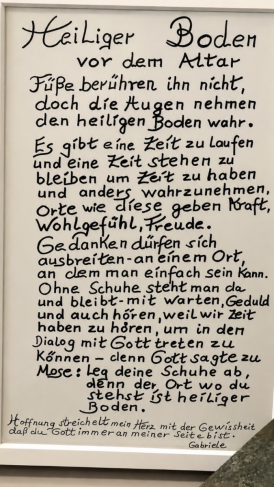 Heiliger Boden
vor dem Altar
Füße berühren ihn nicht,
doch die Augen nehmen
den heiligen Boden wahr.
Es gibt eine Zeit zu laufen
und eine Zeit stehen zu
bleiben um Zeit zu haben
und anders wahrzunehmen,
Orte wie diese geben Kraft,
Wohlgefühl, Freude.
Gedanken dürfen sich
ausbreiten-an einem Ort,
an dem man einfach sein kann.
Ohne Schuhe steht man da
und bleibt-mit Warten, Geduld
und auch hören, weil wir Zeit
haben zu hören, um in den
Dialog mit Gott treten zu
Können – denn Gott sagte zu
Mose: Leg deine Schuhe ab,
denn der Ort wo du
stehst ist heiliger
Boden.
Hoffnung streichelt mein Herz mit der Gewissheit
daß du Gott immer an meiner Seite bist.
Gabriele